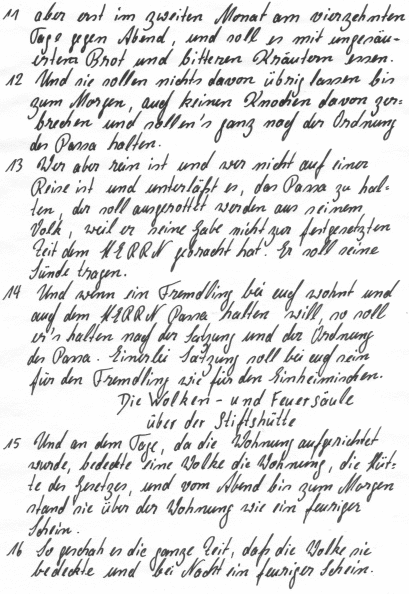 11 aber erst im zweiten Monat am vierzehnten
Tage gegen Abend, und soll es mit ungesäu-
ertem Brot und bitteren Kräutern essen.
12 Und sie sollen nichts davon übrig lassen bis
zum Morgen, auch keinen Knochen davon zer-
brechen und sollen's ganz nach der Ordnung
des Passa halten.
13 Wer aber rein ist und wer nicht auf einer
Reise ist und unterläßt es, das Passa zu hal-
ten, der soll ausgerottet werden aus seinem
Volk, weil er seine Gabe nicht zur festgesetzten
Zeit dem HERRN gebracht hat. Er soll seine
Sünde tragen.
14 Und wenn ein Fremdling bei euch wohnt und
auch dem HERRN Passa halten will, so soll
er's halten nach der Satzung und der Ordnung
des Passa. Einerlei Satzung soll bei euch sein
für den Fremdling wie für den Einheimischen.
Die Wolken- und Feuersäule
über der Stiftshütte
15 Und an dem Tage, da die Wohnung aufgerichtet
wurde, bedeckte eine Wolke die Wohnung, die Hüt-
te des Gesetzes, und vom Abend bis zum Morgen
stand sie über der Wohnung wie ein feuriger
Schein.
16 So geschah es die ganze Zeit, daß die Wolke sie
bedeckte und bei Nacht ein feuriger Schein.